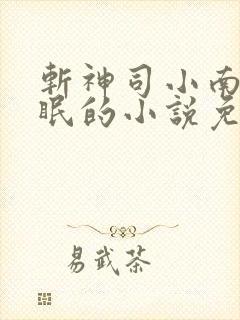 斬神司小南
眠的小說免
易武茶